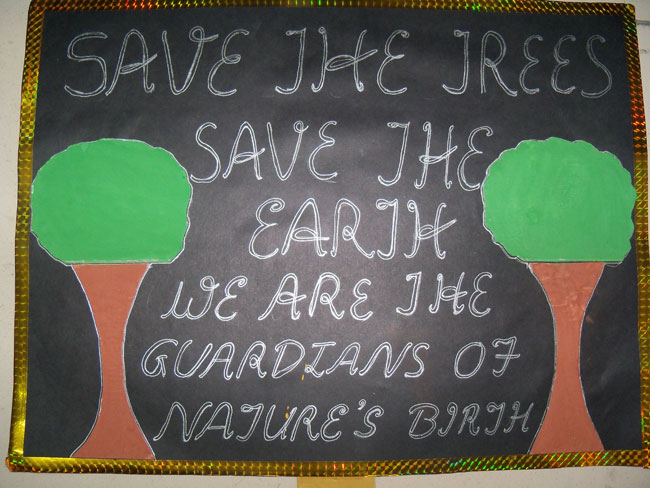 SAVE THE TREES
SAVE THE
EARTH
WE ARE THE
GUARDIANS OF
NATURE'S BIRTH